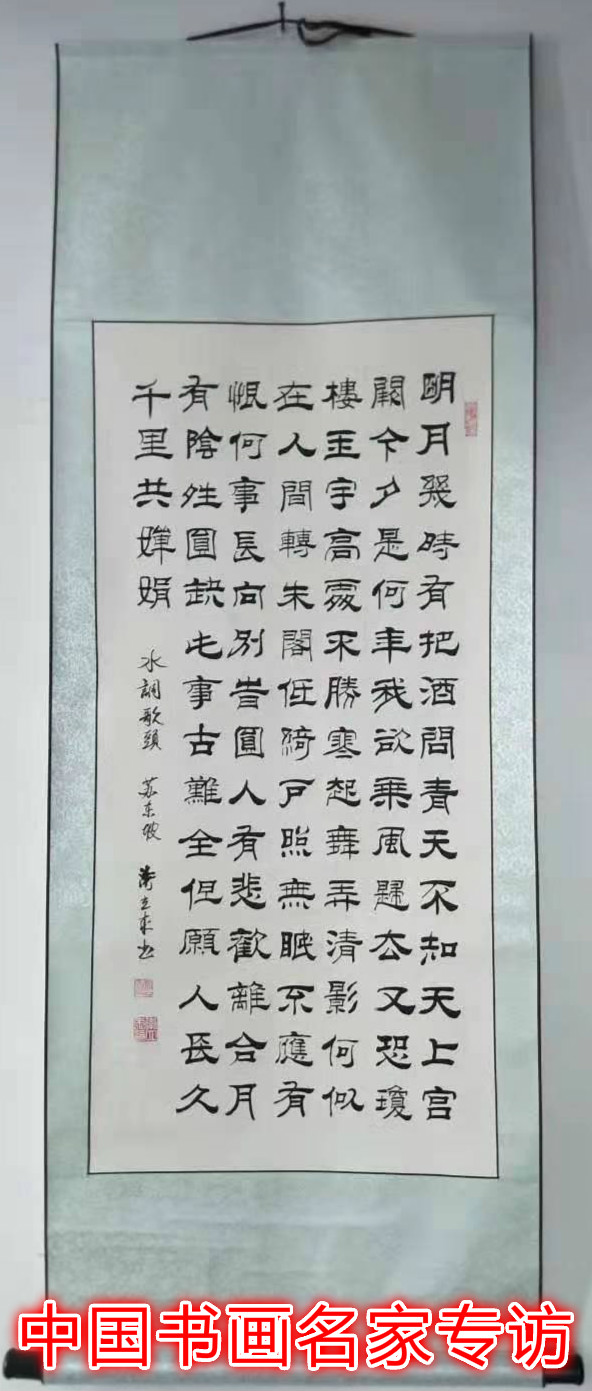 明月幾時有把酒問青天不知天上宮
闕今夕是何年我欲乘風歸去又恐瓊
樓玉宇高處不勝寒起舞弄清影何似
在人間轉朱閣低綺戶照無眠不應有
恨何事長向別旹圓人有悲歡離合月
有陰晴圓缺此事古難全但願人長久
千里共嬋娟
水調歌頭 蘇東坡
中国书画名家专访